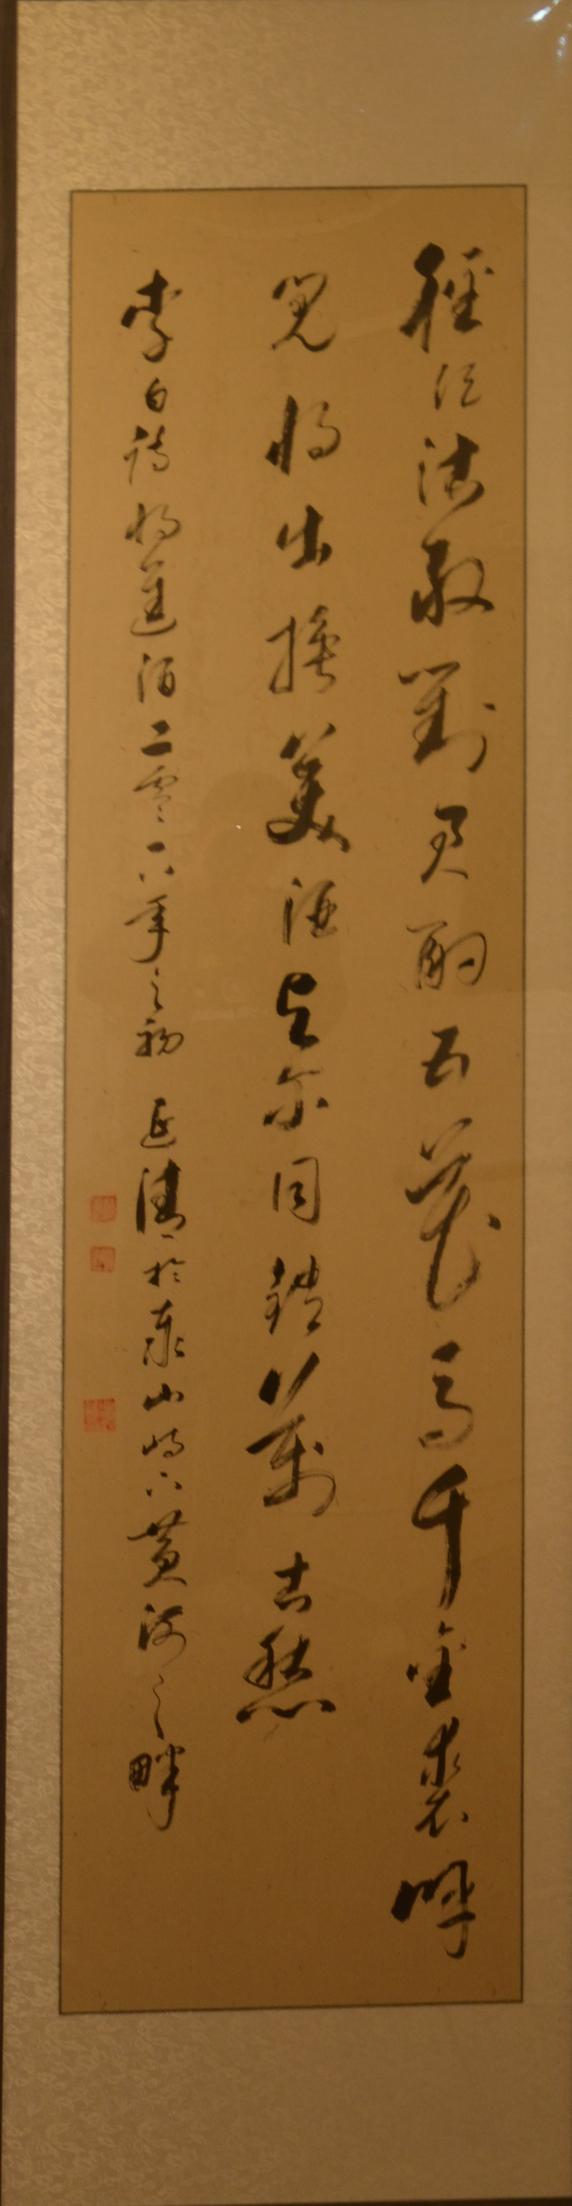 徑須沽取對君酌五花馬千金裘呼
兒將出換美酒与尔同銷萬古愁
李白詩將進酒二零一八年之初 於泰山下黄河之畔